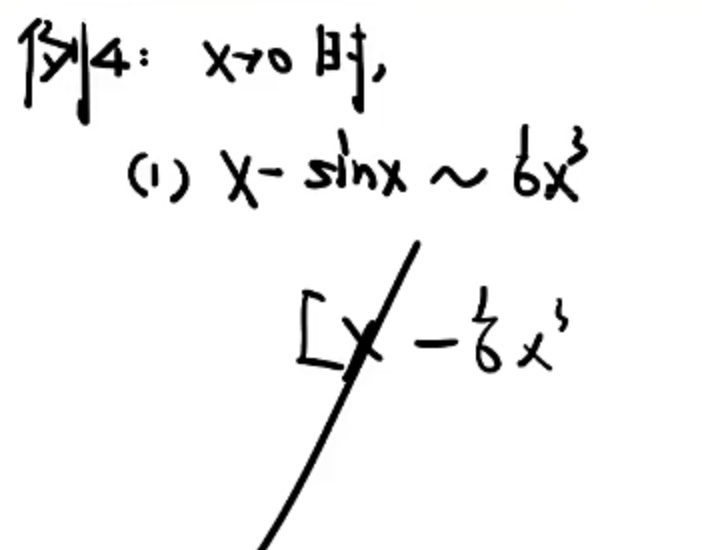 例4: x→0 时,
(1) x - sinx ~ 1/6 x³
[x - 1/6 x³